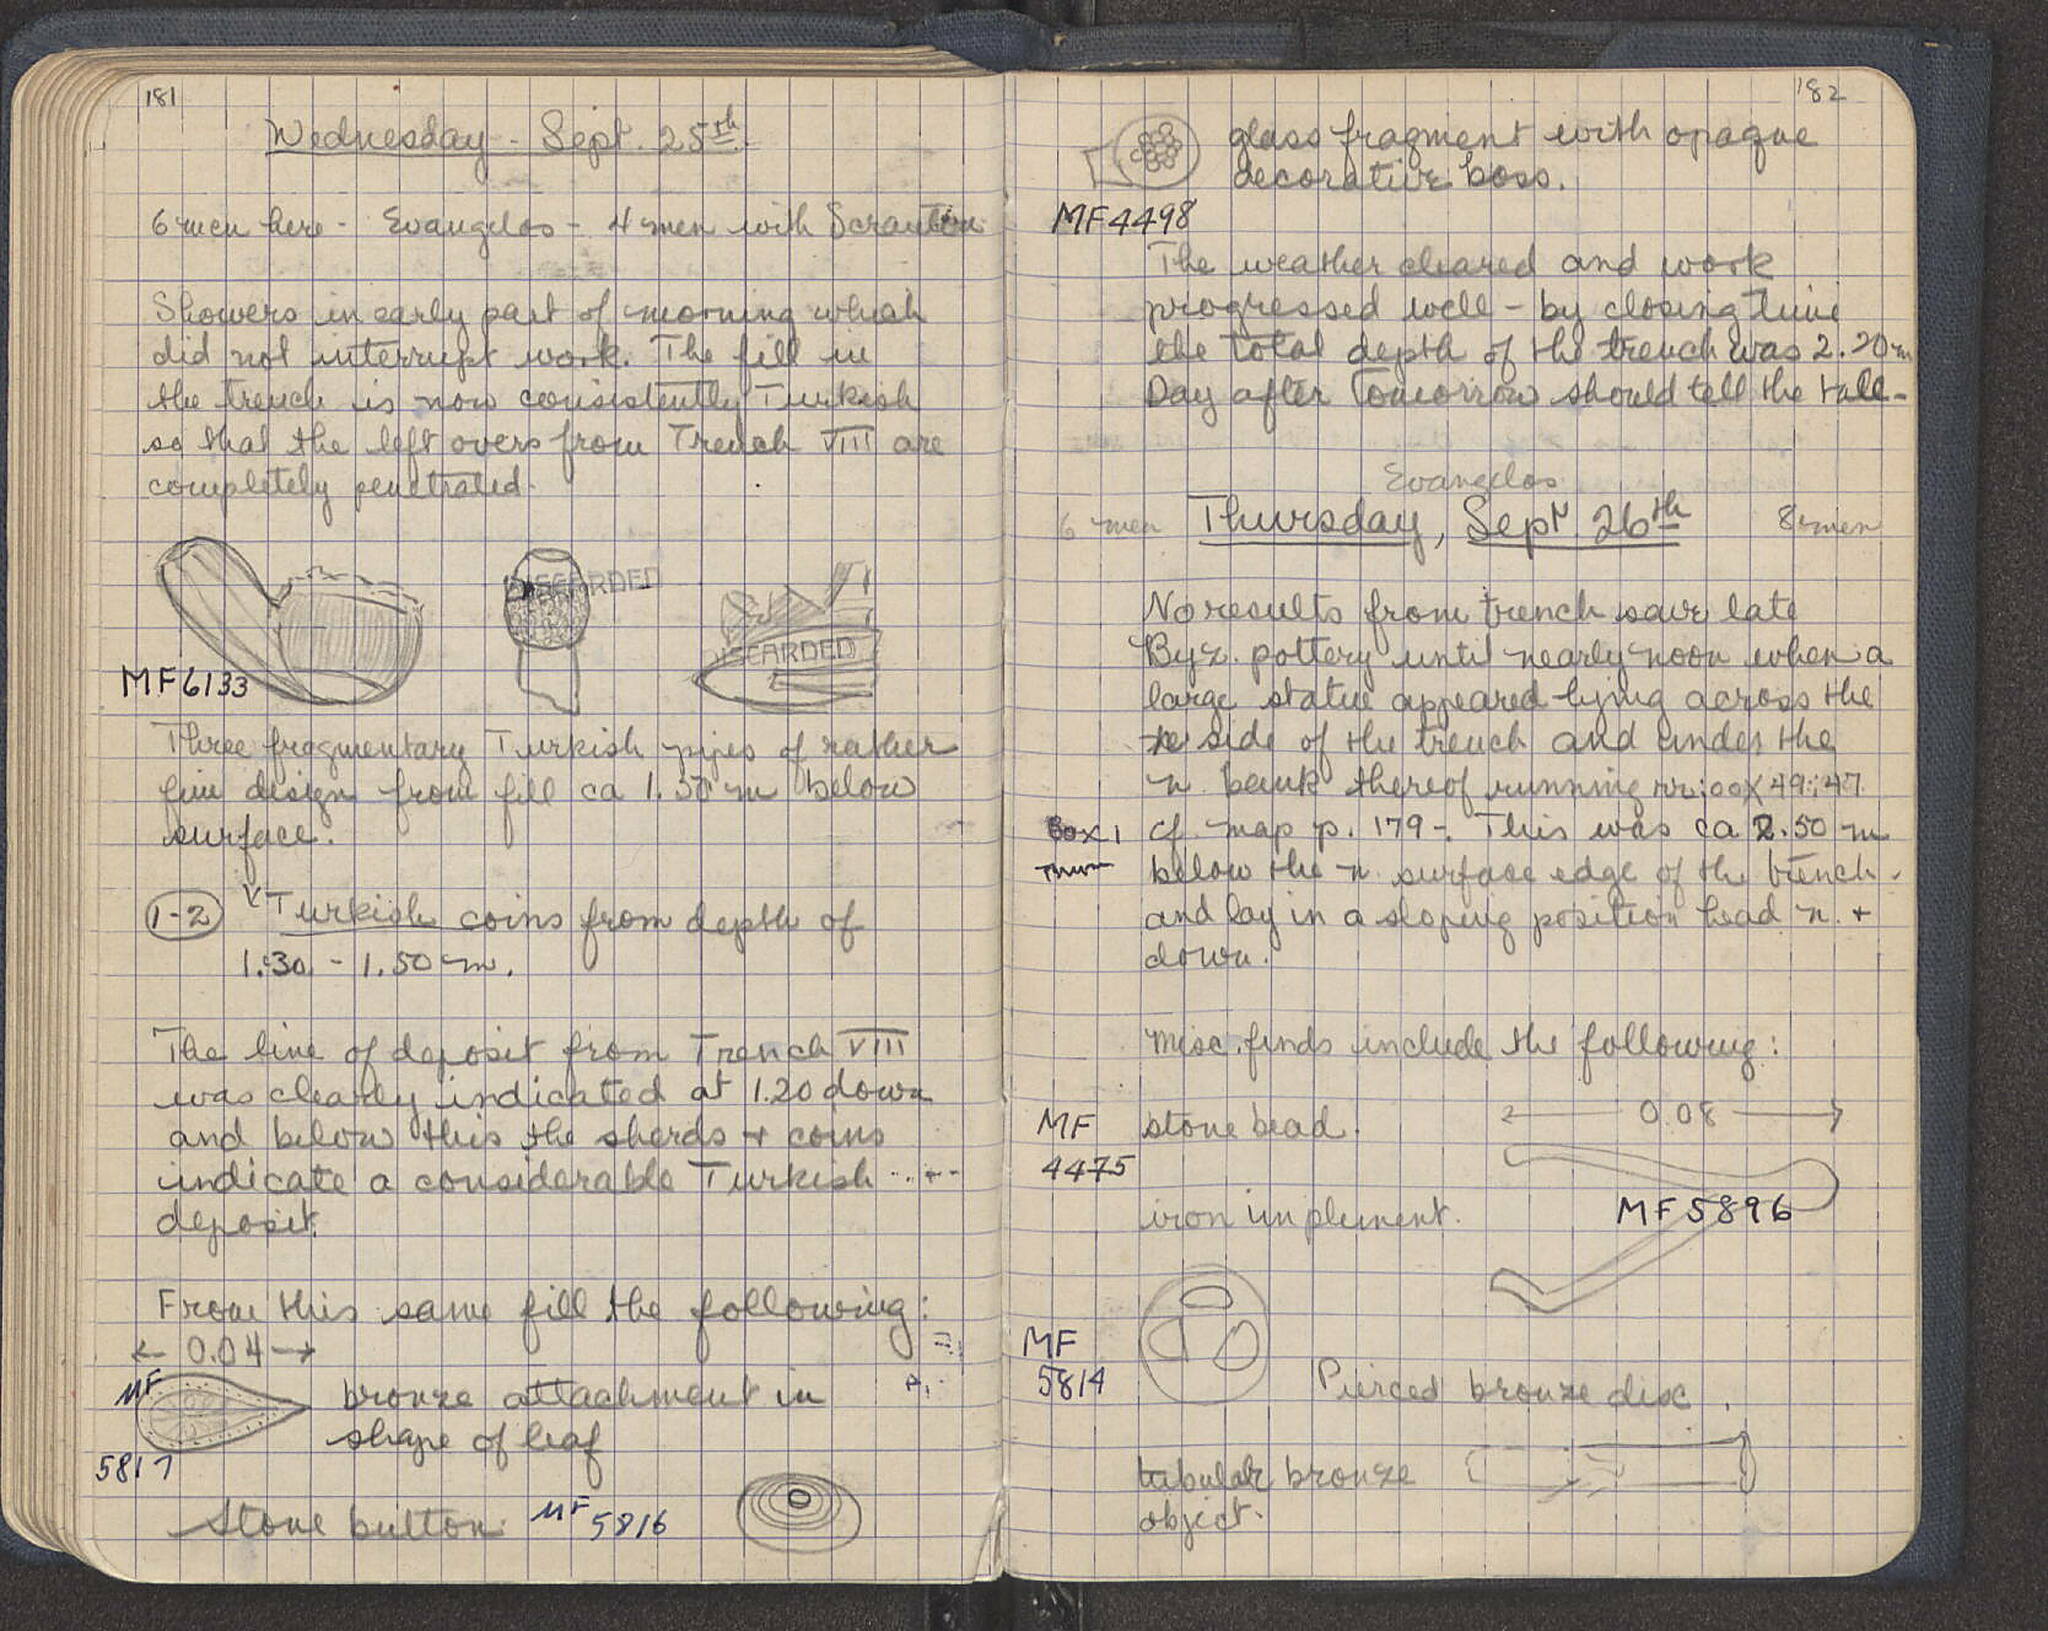 181
Wednesday - Sept. 25th
6 men here - Evangelos - 4 men with Scranton
Showers in early part of morning which
did not interrupt work. The fill in
the trench is now consistently Turkish
so that the left overs from Trench VIII are
completely penetrated.
DISCARDED
DISCARDED
MF6133
Three fragmentary Turkish pipes of rather
fine design from fill ca 1.50 m below
surface.
1-2 Turkish coins from depth of
1.30 - 1.50 m.
The line of deposit from Trench VIII
was clearly indicated at 1.20 down
and below this the sherds + coins
indicate a considerable Turkish
deposit.
From this same fill the following:
← 0.04 →
MF
bronze attachment in
shape of leaf
5817
Stone button MF 5816
182
glass fragment with opaque
decorative boss.
MF4498
The weather cleared and work
progressed well - by closing time
the total depth of the trench was 2.20 m
Day after tomorrow should tell the tale -
Evangelos
6 men Thursday, Sept 26th 8 men
No results from trench save late
Byz. pottery until nearly noon when a
large statue appeared lying across the
side of the trench and under the
n bank thereof running
Box 1 cf. map p. 179 -. This was ca 2.50 m
below the n. surface edge of the trench.
and lay in a sloping position head n. +
down.
Misc. finds include the following:
MF stone bead. ← 0.08 →
4475
iron implement. MF5896
MF
5814
Pierced bronze disc.
tubular bronze
object.